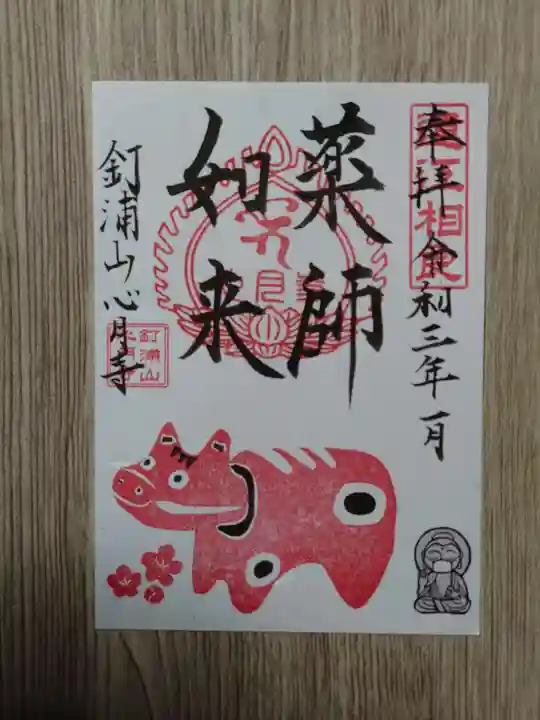 奉拝 令和三年一月
薬師
如来
釘浦山心月寺
釘浦山